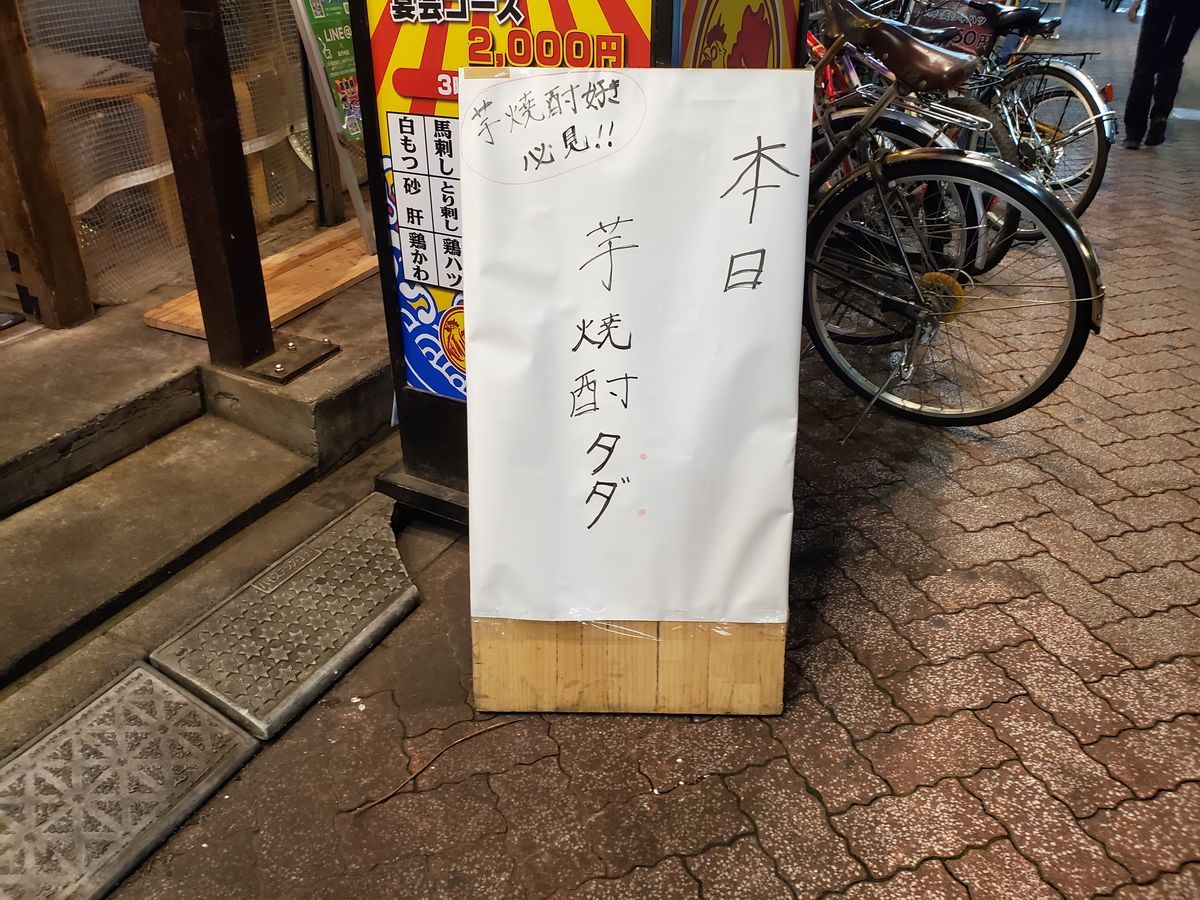 芋焼酎好き
必見!!
本日
芋焼酎タダ
宴会コース
2,000円
馬刺し
とり刺し
鶏ハツ
白もつ
砂肝
鶏かわ
LINE@